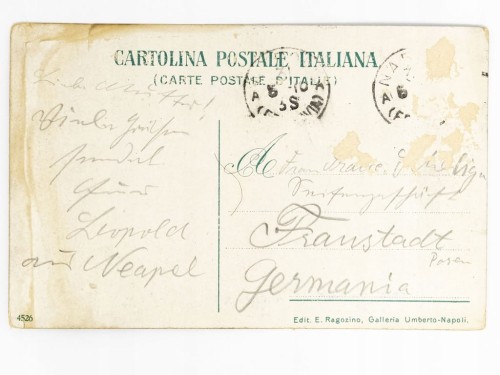 CARTOLINA POSTALE ITALIANA
(CARTE POSTALE D'ITALIE)
Liebe Mutter!
Viele Grüsse
sendet
Euer
Leopold
aus Neapel
A
Frau
Seifengeschäft
Fraustadt
Posen
Germania
4526
Edit. E. Ragozino, Galleria Umberto-Napoli.